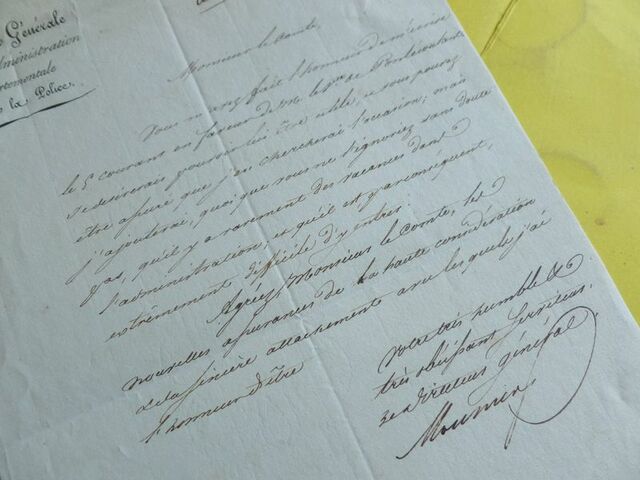 Générale
dministration
rtementale
la Police.
Monsieur le Comte,
Vous m'avez fait l'honneur de m'écrire
le 5 courant en faveur de M. le Vte de
je desirerais pouvoir lui être utile, et vous pouvez
être assuré que j'en chercherai l'occasion; mais
j'ajouterai, quoi que vous ne l'ignoriez sans doute
pas, qu'il y a rarement des vacances dans
l'administration, et qu'il est par conséquent,
extrêmement difficile d'y entrer.
Agréez, Monsieur le Comte, les
nouvelles assurances de la haute considération
et de la sincère attachement avec lesquels j'ai
l'honneur d'être
Votre très humble &
très obéissant Serviteur,
Le Directeur Général
Mounier